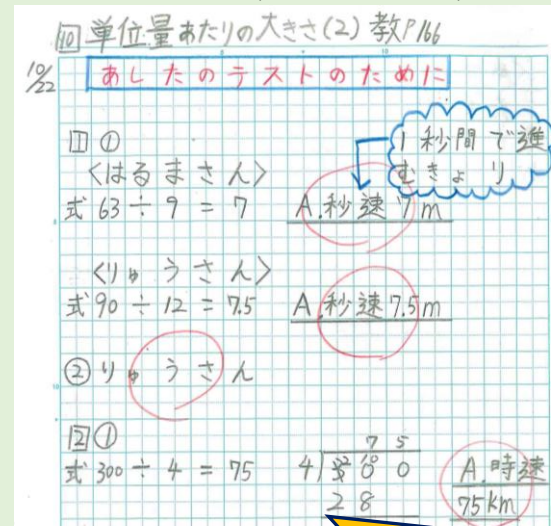 ⑩単位量あたりの大きさ(2) 教P166
10/22 あしたのテストのために
1 ①
1秒間で進
むきょり
〈はるまさん〉
式 63÷9=7 A.秒速7m
〈りゅうさん〉
式 90÷12=7.5 A.秒速7.5m
② りゅうさん
2 ①
75
式 300÷4=75 4)300 A.時速
28 75km